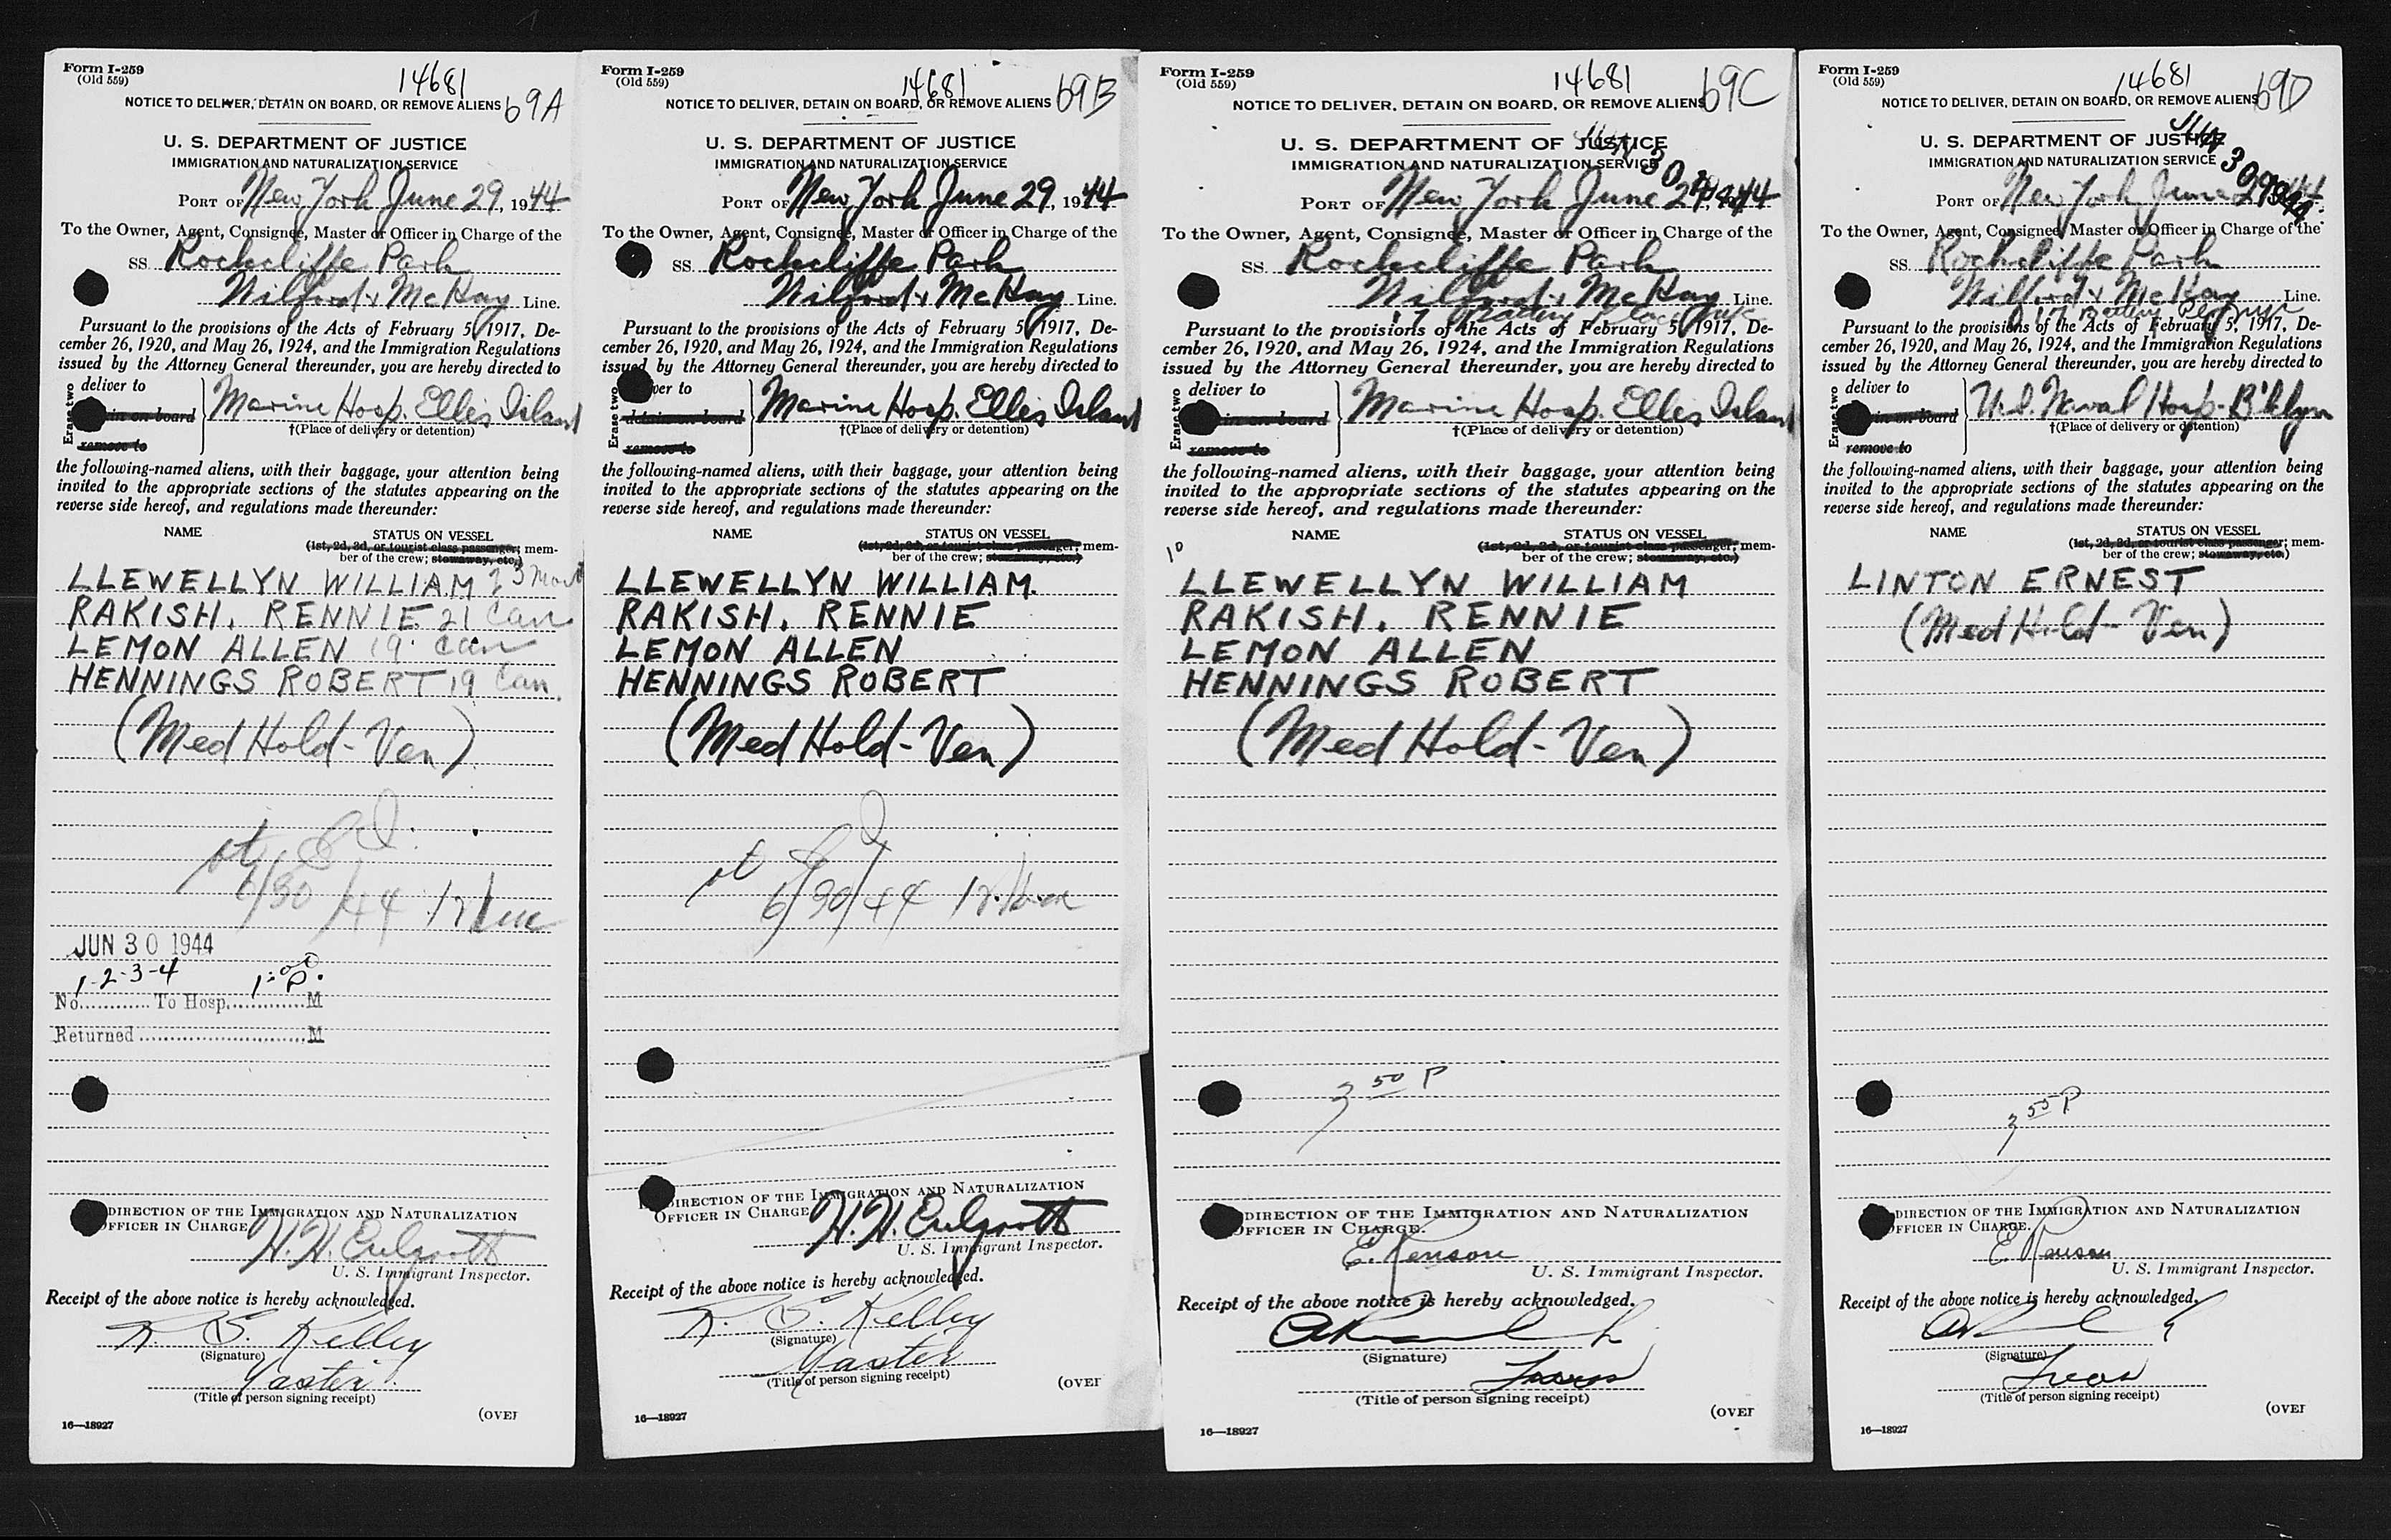 Form I-259
(Old 559)
14681
69A
NOTICE TO DELIVER, DETAIN ON BOARD, OR REMOVE ALIENS
U. S. DEPARTMENT OF JUSTICE
IMMIGRATION AND NATURALIZATION SERVICE
PORT OF New York June 29, 1944
To the Owner, Agent, Consignee, Master or Officer in Charge of the
SS. Rockcliffe Park
McKay Line.
Pursuant to the provisions of the Acts of February 5, 1917, De-
cember 26, 1920, and May 26, 1924, and the Immigration Regulations
issued by the Attorney General thereunder, you are hereby directed to
Erase two
deliver to
in on board
remove to
Marine Hosp. Ellis Island
†(Place of delivery or detention)
the following-named aliens, with their baggage, your attention being
invited to the appropriate sections of the statutes appearing on the
reverse side hereof, and regulations made thereunder:
NAME
STATUS ON VESSEL
(1st, 2d, 3d, or tourist class passenger; mem-
ber of the crew; stowaway, etc.)
LLEWELLYN WILLIAM 23
RAKISH, RENNIE 21 Can
LEMON ALLEN 19 Can
HENNINGS ROBERT 19 Can.
(Med Hold - Ven)
6/30/44
JUN 30 1944
No. 1-2-3-4 To Hosp. 1:00 P. M
Returned M
DIRECTION OF THE IMMIGRATION AND NATURALIZATION
OFFICER IN CHARGE
H. H.
U. S. Immigrant Inspector.
Receipt of the above notice is hereby acknowledged.
Kelley
(Signature)
Master
(Title of person signing receipt)
(OVER
16—18927
Form I-259
(Old 559)
14681
69B
NOTICE TO DELIVER, DETAIN ON BOARD, OR REMOVE ALIENS
U. S. DEPARTMENT OF JUSTICE
IMMIGRATION AND NATURALIZATION SERVICE
PORT OF New York June 29, 1944
To the Owner, Agent, Consignee, Master or Officer in Charge of the
SS. Rockcliffe Park
McKay Line.
Pursuant to the provisions of the Acts of February 5, 1917, De-
cember 26, 1920, and May 26, 1924, and the Immigration Regulations
issued by the Attorney General thereunder, you are hereby directed to
Erase two
ver to
detain on board
remove to
Marine Hosp. Ellis Island
†(Place of delivery or detention)
the following-named aliens, with their baggage, your attention being
invited to the appropriate sections of the statutes appearing on the
reverse side hereof, and regulations made thereunder:
NAME
STATUS ON VESSEL
(1st, 2d, 3d, or tourist class passenger; mem-
ber of the crew; stowaway, etc.)
LLEWELLYN WILLIAM.
RAKISH, RENNIE
LEMON ALLEN
HENNINGS ROBERT
(Med Hold - Ven)
6/30/44
DIRECTION OF THE IMMIGRATION AND NATURALIZATION
OFFICER IN CHARGE
H. H.
U. S. Immigrant Inspector.
Receipt of the above notice is hereby acknowledged.
Kelley
(Signature)
Master
(Title of person signing receipt)
(OVER
16—18927
Form I-259
(Old 559)
14681
69C
NOTICE TO DELIVER, DETAIN ON BOARD, OR REMOVE ALIENS
U. S. DEPARTMENT OF JUSTICE
IMMIGRATION AND NATURALIZATION SERVICE
JUN 30 1944
PORT OF New York June 29, 1944
To the Owner, Agent, Consignee, Master or Officer in Charge of the
SS. Rockcliffe Park
McKay Line.
17 Battery Place
Pursuant to the provisions of the Acts of February 5, 1917, De-
cember 26, 1920, and May 26, 1924, and the Immigration Regulations
issued by the Attorney General thereunder, you are hereby directed to
Erase two
deliver to
in on board
remove to
Marine Hosp. Ellis Island
†(Place of delivery or detention)
the following-named aliens, with their baggage, your attention being
invited to the appropriate sections of the statutes appearing on the
reverse side hereof, and regulations made thereunder:
NAME
STATUS ON VESSEL
(1st, 2d, 3d, or tourist class passenger; mem-
ber of the crew; stowaway, etc.)
10
LLEWELLYN WILLIAM
RAKISH, RENNIE
LEMON ALLEN
HENNINGS ROBERT
(Med Hold - Ven)
3 50 P
DIRECTION OF THE IMMIGRATION AND NATURALIZATION
OFFICER IN CHARGE.
E.
U. S. Immigrant Inspector.
Receipt of the above notice is hereby acknowledged.
(Signature)
(Title of person signing receipt)
(OVER
16—18927
Form I-259
(Old 559)
14681
69D
NOTICE TO DELIVER, DETAIN ON BOARD, OR REMOVE ALIENS
U. S. DEPARTMENT OF JUSTICE
IMMIGRATION AND NATURALIZATION SERVICE
JUN 30 1944
PORT OF New York June 29, 1944
To the Owner, Agent, Consignee, Master or Officer in Charge of the
SS. Rockcliffe Park
McKay Line.
17 Battery
Pursuant to the provisions of the Acts of February 5, 1917, De-
cember 26, 1920, and May 26, 1924, and the Immigration Regulations
issued by the Attorney General thereunder, you are hereby directed to
Erase two
deliver to
in on board
remove to
U.S. Naval Hosp - B'klyn
†(Place of delivery or detention)
the following-named aliens, with their baggage, your attention being
invited to the appropriate sections of the statutes appearing on the
reverse side hereof, and regulations made thereunder:
NAME
STATUS ON VESSEL
(1st, 2d, 3d, or tourist class passenger; mem-
ber of the crew; stowaway, etc.)
LINTON ERNEST
(Med Hold - Ven)
3 55 P
DIRECTION OF THE IMMIGRATION AND NATURALIZATION
OFFICER IN CHARGE.
E
U. S. Immigrant Inspector.
Receipt of the above notice is hereby acknowledged.
(Signature)
(Title of person signing receipt)
(OVER
16—18927